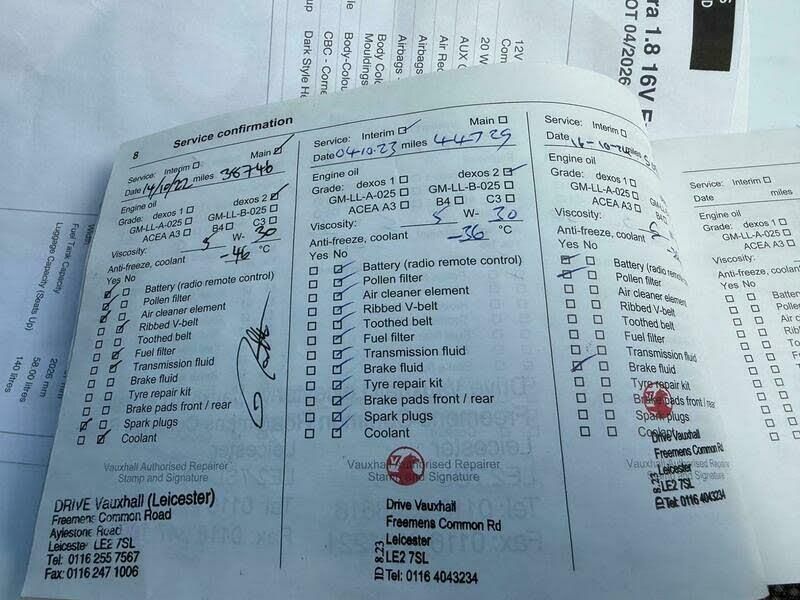 8
Service confirmation
Service: Interim
Main
Date 14/10/22 miles 38746
Engine oil
Grade: dexos 1
dexos 2
GM-LL-A-025
GM-LL-B-025
ACEA A3
B4
C3
Viscosity: 5 W- 30
Anti-freeze, coolant -46 °C
Yes No
Battery (radio remote control)
Pollen filter
Air cleaner element
Ribbed V-belt
Toothed belt
Fuel filter
Transmission fluid
Brake fluid
Tyre repair kit
Brake pads front / rear
Spark plugs
Coolant
Vauxhall Authorised Repairer
Stamp and Signature
DRIVE Vauxhall (Leicester)
Freemens Common Road
Aylestone Road
Leicester LE2 7SL
Tel: 0116 255 7567
Fax: 0116 247 1006
Service: Interim
Main
Date 04.10.23 miles 44729
Engine oil
Grade: dexos 1
dexos 2
GM-LL-A-025
GM-LL-B-025
ACEA A3
B4
C3
Viscosity: 5 W- 30
Anti-freeze, coolant -36 °C
Yes No
Battery (radio remote control)
Pollen filter
Air cleaner element
Ribbed V-belt
Toothed belt
Fuel filter
Transmission fluid
Brake fluid
Tyre repair kit
Brake pads front / rear
Spark plugs
Coolant
Vauxhall Authorised Repairer
Stamp and Signature
Drive Vauxhall
Freemens Common Rd
Leicester
LE2 7SL
ID 8.23 Tel: 0116 4043234
Service: Interim
Date 16-10-24 miles
Engine oil
Grade: dexos 1
GM-LL-A-025
ACEA A3
Viscosity:
Anti-freeze, coolant
Yes No
Battery (radio remo
Pollen filter
Air cleaner element
Ribbed V-belt
Toothed belt
Fuel filter
Transmission fluid
Brake fluid
Tyre repair kit
Brake pads front / rear
Spark plugs
Coolant
Drive Vauxhall
Freemens Common Rd
Leicester
LE2 7SL
ID 8.23 Tel: 0116 4043234
Service: Interim
Date miles
Engine oil
Grade: dexos 1
GM-LL-A-025
ACEA A3
Viscosity:
Anti-freeze, coolant
Yes No
Battery (ra
Pollen filter
Air cleaner
Ribbed V-
Toothed
Fuel filte
Transm
Brake
Tyre
Bra
Sp
C
ra 1.8 16V E
OT 04/2026
12V
20 W
AUX C
Air Rec
Airbags
Airbags -
Body Col
Mouldings
Body-Colou
CBC - Corne
Dark Style He
Width
2026 mm
Fuel Tank Capacity
58.00 litres
Luggage Capacity (Seats Up)
140 litres